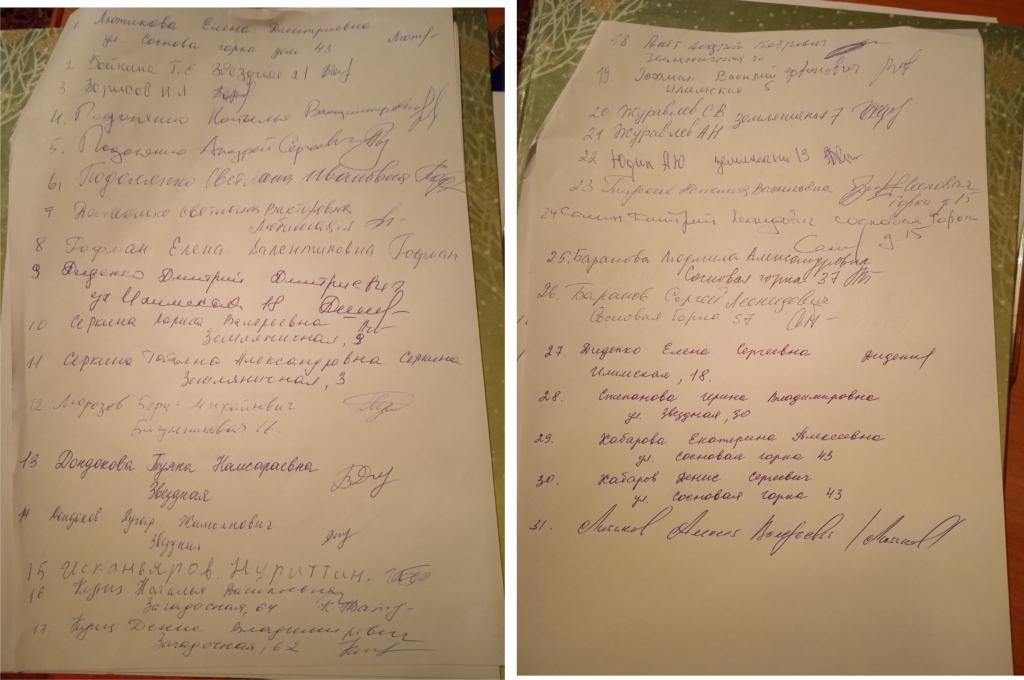 1. Лютикова Елена Дмитриевна
ул. Соснова горка дом 43 Лют-
2 Бойкина Т.Е Звездная 21
3 Борисов И.А.
4. Подолянко Наталья Владимировна
5. Подолянко Андрей Сергеевич
6, Подолянко Светлана Ивановна
7 Светлана Викторовна
8 Гофман Елена Валентиновна Гофман
9 Диденко Дмитрий Дмитриевич
ул Илимская 18
10 Серкина Лариса Валерьевна
Земляничная, 3
11 Серкина Татьяна Александровна Серкина
Земляничная, 3
12 Морозов Борис Михайлович
13 Дондокова Туяна Намсараевна
Звездная
14 Дондоков Жимбянович
Звездная
15 Исканьяров. Нуриттин.
16 Куриц Наталья Васильевна
Загадочная, 64
17. Куриц Денис Владимирович
Загадочная, 62
18 Андрей Петрович
19 Гофман Василий
Илимская 5
20 Журавлев С В земляничная 7
21 Журавлев А Н
22 Юдин А Ю земляничн 13
23 Наталья Васильевна Сосновая
горка д 15
24 Салин Дмитрий Леонидович сосновая горка
д. 15
25. Баранова Людмила Александровна
Сосновая горка 37
26. Баранов Сергей Леонидович
Сосновая Горка 37
27. Диденко Елена Сергеевна
Илимская, 18.
28. Степанова Ирина Владимировна
ул. Звездная, 30
29. Хабарова Екатерина Алексеевна
ул. Сосновая горка 43
30. Хабаров Денис Сергеевич
ул. Сосновая горка 43
31.